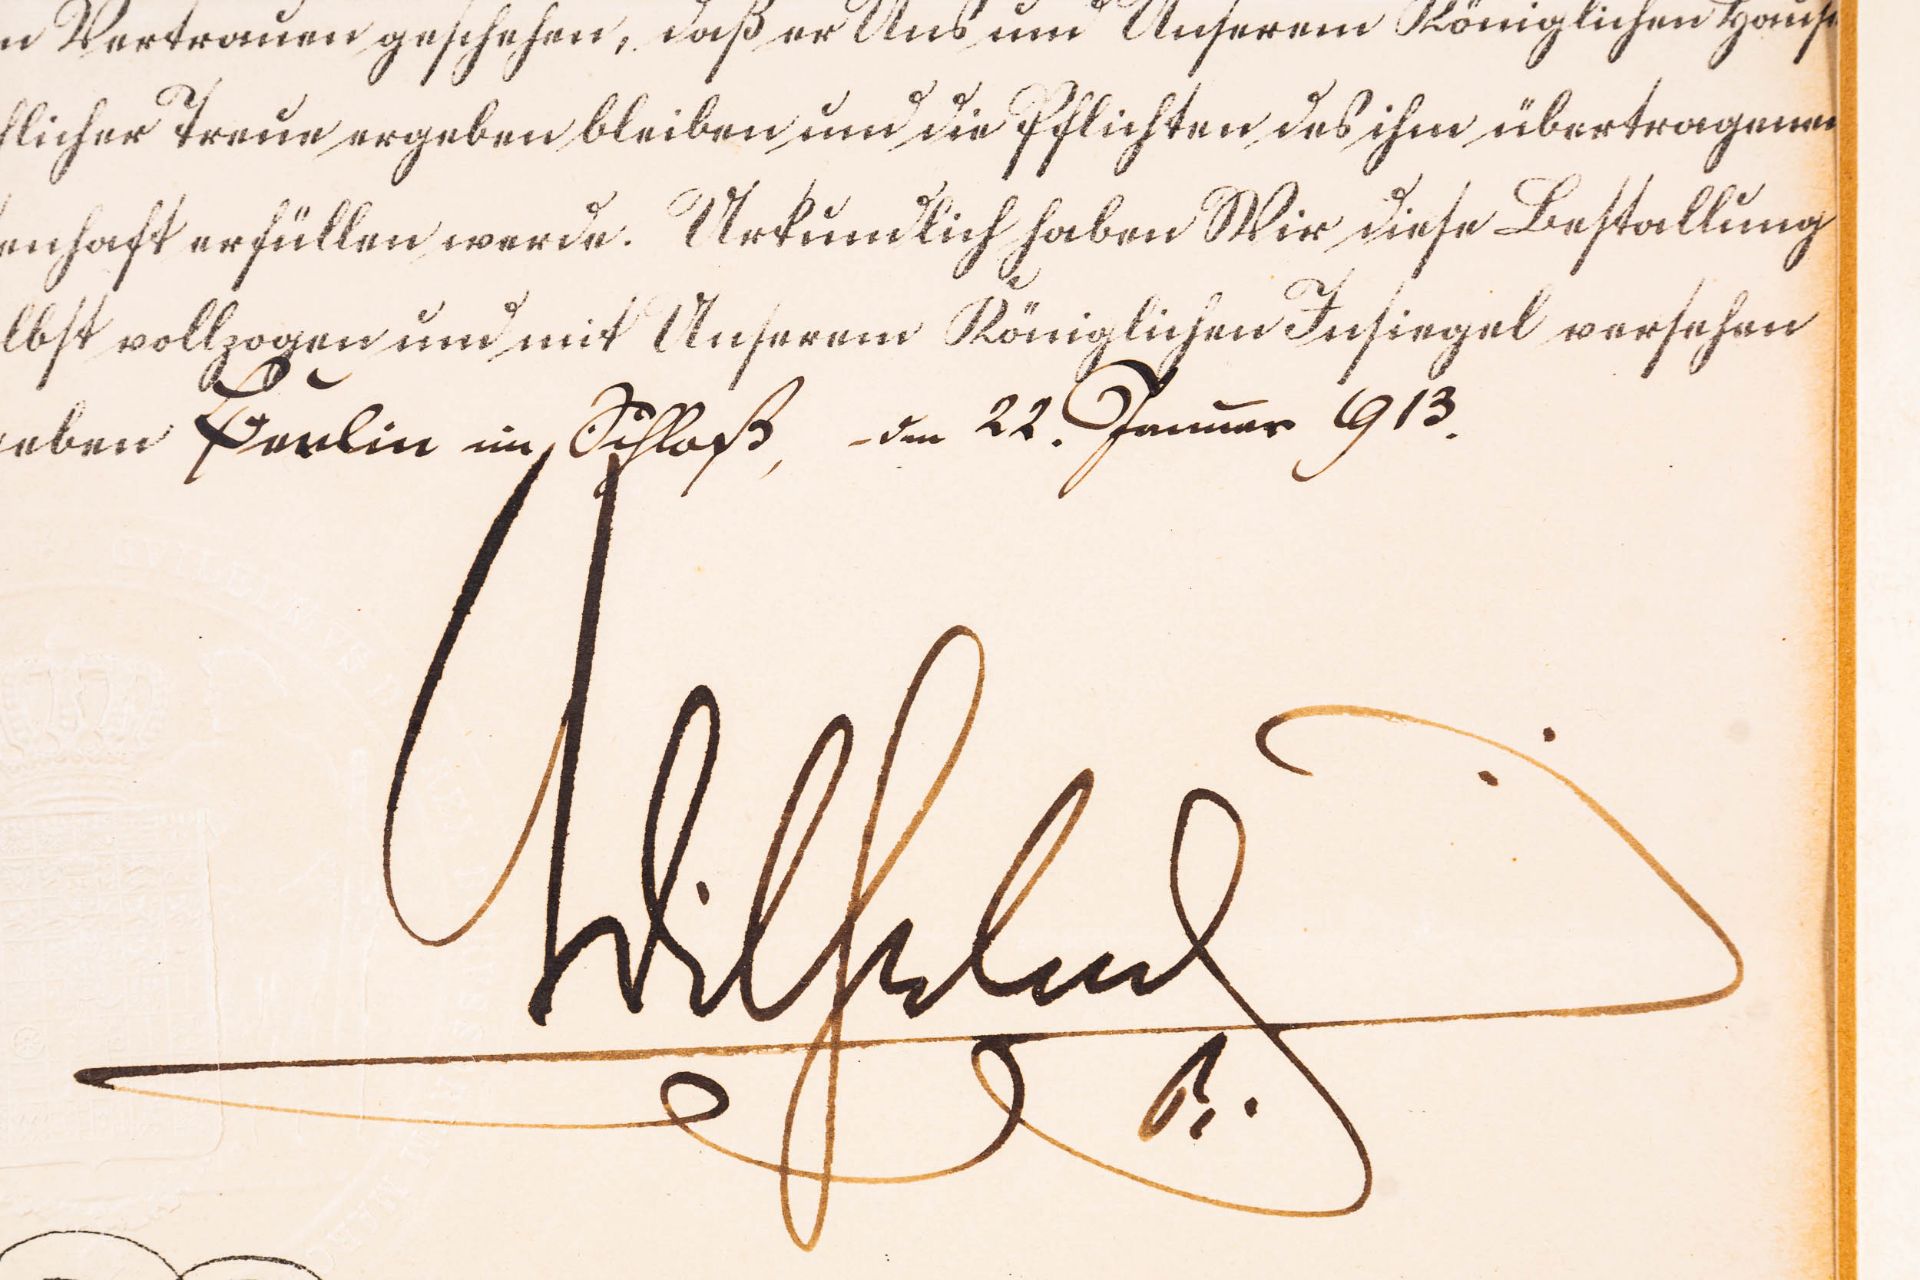 n Vertrauen geschehen, daß er Uns und Unserem Königlichen Hause
flicher Treue ergeben bleiben und die Pflichten des ihm übertragenen
enhaft erfüllen werde. Urkundlich haben Wir diese Bestallung
lbst vollzogen und mit Unserem Königlichen Insiegel versehen
eben Berlin im Schloß, den 22. Januar 1913.
Wilhelm
R.